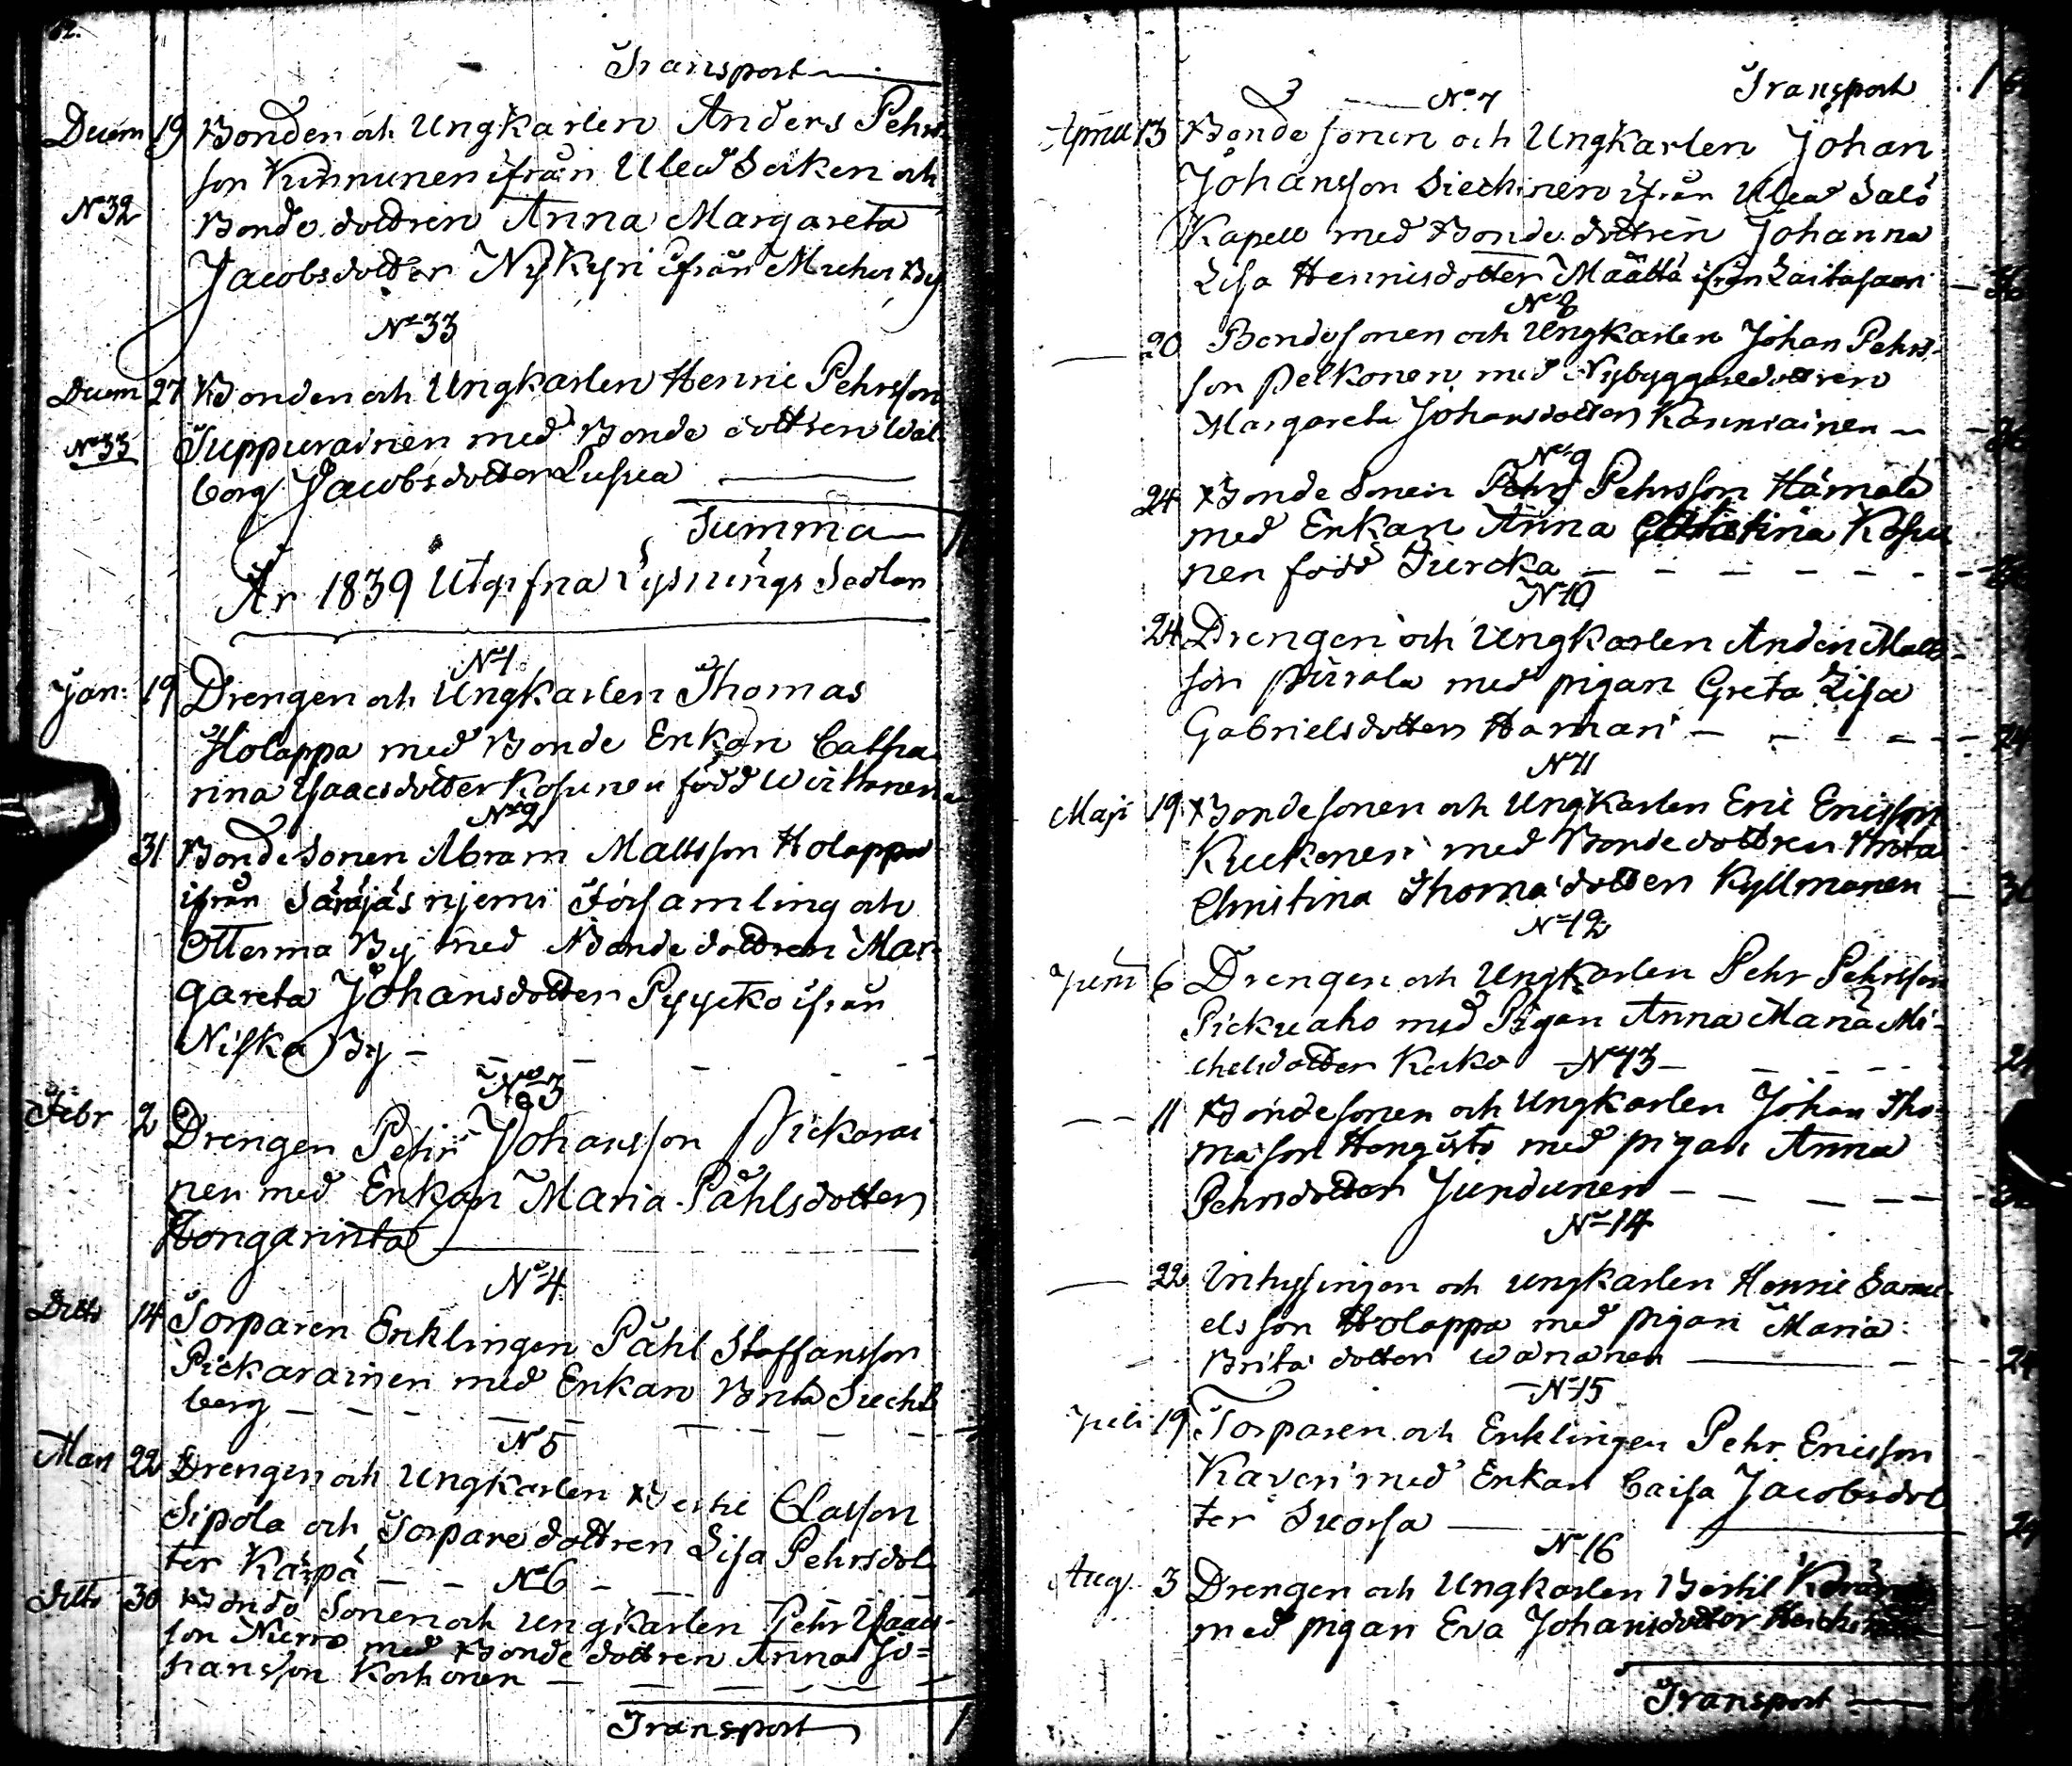 Transport
Decem 19 Bonden och Ungkarlen Anders Pehrs-
son Kinnunen ifrån Uleå Socken och
No 32 Bonde dottren Anna Margareta
Jacobsdotter Nykyri ifrån Muhos By
No 33
Decem 27 Bonden och Ungkarlen Henric Pehrsson
No 33 Juppurainen med Bonde dottren Wal-
borg Jacobsdotter
Summa
År 1839 Utgifna Lysnings Sedlar
No 1
Jan: 19 Drengen och Ungkarlen Thomas
Holappa med Bonde Enkan Catha-
rina Isaacsdotter Kosunen född Wirthanen
No 2
31 Bonde Sonen Abram Mattsson Holappa
ifrån Säräjäs njemi Församling och
Otterma By med Bonde dottren Mar-
gareta Johansdotter Pyykkö ifrån
Niska By
No 3
Febr 2 Drengen Pehr Johansson Pickarai
nen med Enkan Maria Påhlsdotter
Hongarinta
No 4
Ditto 14 Torparen Enklingen Påhl Staffansson
Pickarainen med Enkan Brita
berg
No 5
Mars 22 Drengen och Ungkarlen Bertil Classon
Sipola och Torpare dottren Lisa Pehrsdot-
ter Kärpä
No 6
Ditto 30 Bonde Sonen och Ungkarlen Pehr Isaacs-
son med Bonde dottren Anna Jo=
hansson Korhonen
Transport 1
Transport 1
No 7
April 13 Bonde sonen och Ungkarlen Johan
Johansson Siechinen ifrån Uleå Salo
Kapell med Bonde dottren Johanna
Lisa Henricsdotter Määttä ifrån Laitasaari
No 8
20 Bondesonen och Ungkarlen Johan Pehrs-
son Pelkonen med Nybyggaredottren
Margareta Johansdotter Kanniainen
No 9
24 Bonde Sonen Pehr Pehrsson Hämälä
med Enkan Anna Christina Kosu
nen född Turcka
No 10
24 Drengen och Ungkarlen Anders Matts-
son Pirrola med pigan Greta Lisa
Gabrielsdotter Hamari 24
No 11
Maji 19 Bondesonen och Ungkarlen Eric Ericsson
Kuckonen med Bondedottren Brita
Christina Thomadotter Kyllmanen
No 12
Juni 6 Drengen och Ungkarlen Pehr Pehrsson
Pickuaho med Pigan Anna Maria Mi-
chelsdotter Keiko
No 13
11 Bondesonen och Ungkarlen Johan Tho-
masson Hongisto med pigan Anna
Pehrsdotter Jundunen
No 14
22 Inhysingen och ungkarlen Henric Samu-
elsson Holappa med pigan Maria
Brita dotter Wananen 24
No 15
Juli 19 Torparen och Enklingen Pehr Ericsson
Kaveri med Enkan Caisa Jacobsdot
ter Suorsa 24
No 16
Aug. 3 Drengen och Ungkarlen Bertil
med pigan Eva Johansdotter
Transport